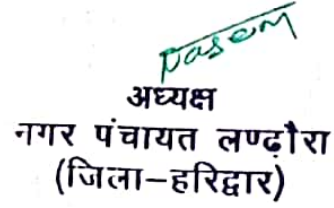 अध्यक्ष
नगर पंचायत लण्ढ़ौरा
(जिला-हरिद्वार)